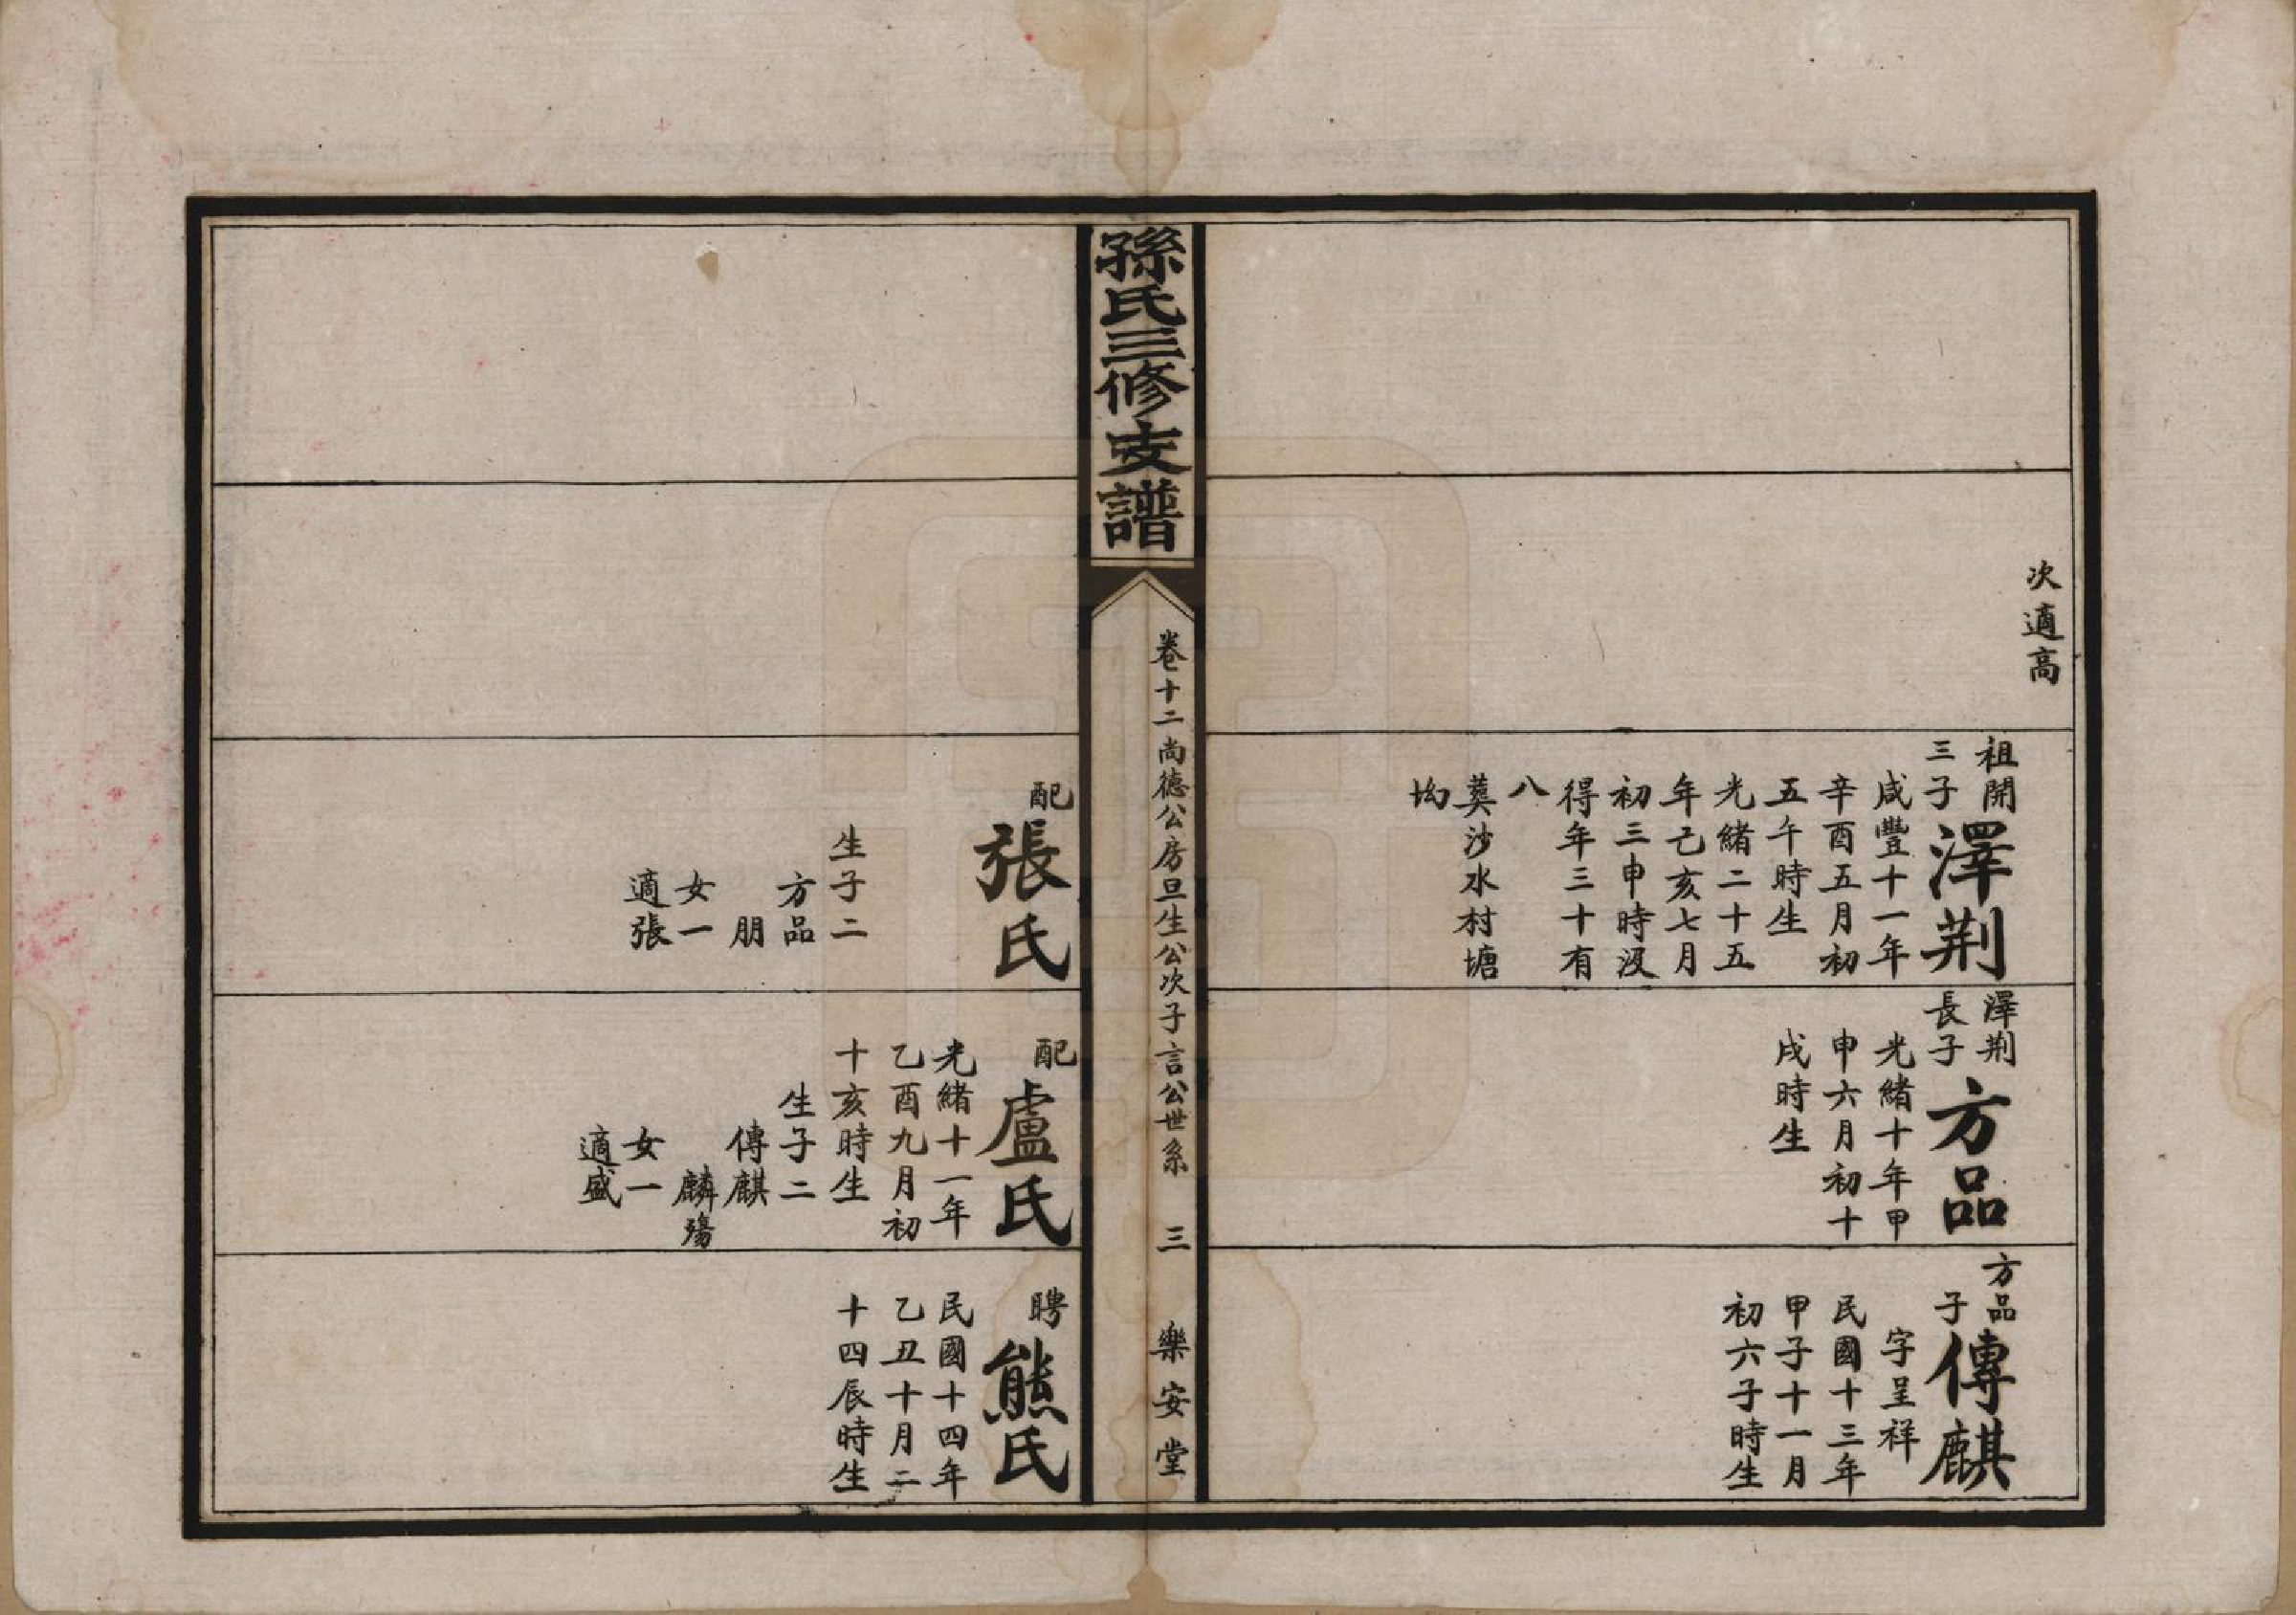 次適高
祖開
三子
澤荆
咸豐十一年
辛酉五月初
五午時生
光緒二十五
年己亥七月
初三申時没
得年三十有
八
塟沙水村塘
坳
澤荆
長子
方品
光緒十年甲
申六月初十
戌時生
方品
子
傳麒
字呈祥
民國十三年
甲子十一月
初六子時生
孫氏三修支譜
卷十二尚德公房旦生公次子言公世系 三 樂安堂
配
張氏
生子二
方品
朋
女一
適張
配
盧氏
光緒十一年
乙酉九月初
十亥時生
生子二
傳麒
麟殤
女一
適盛
聘
熊氏
民國十四年
乙丑十月二
十四辰時生